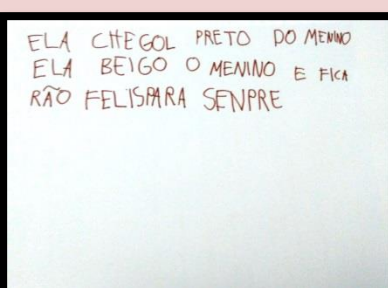 ELA CHEGOL PRETO DO MENINO
ELA BEIGO O MENINO E FICA
RÃO FELISPARA SENPRE